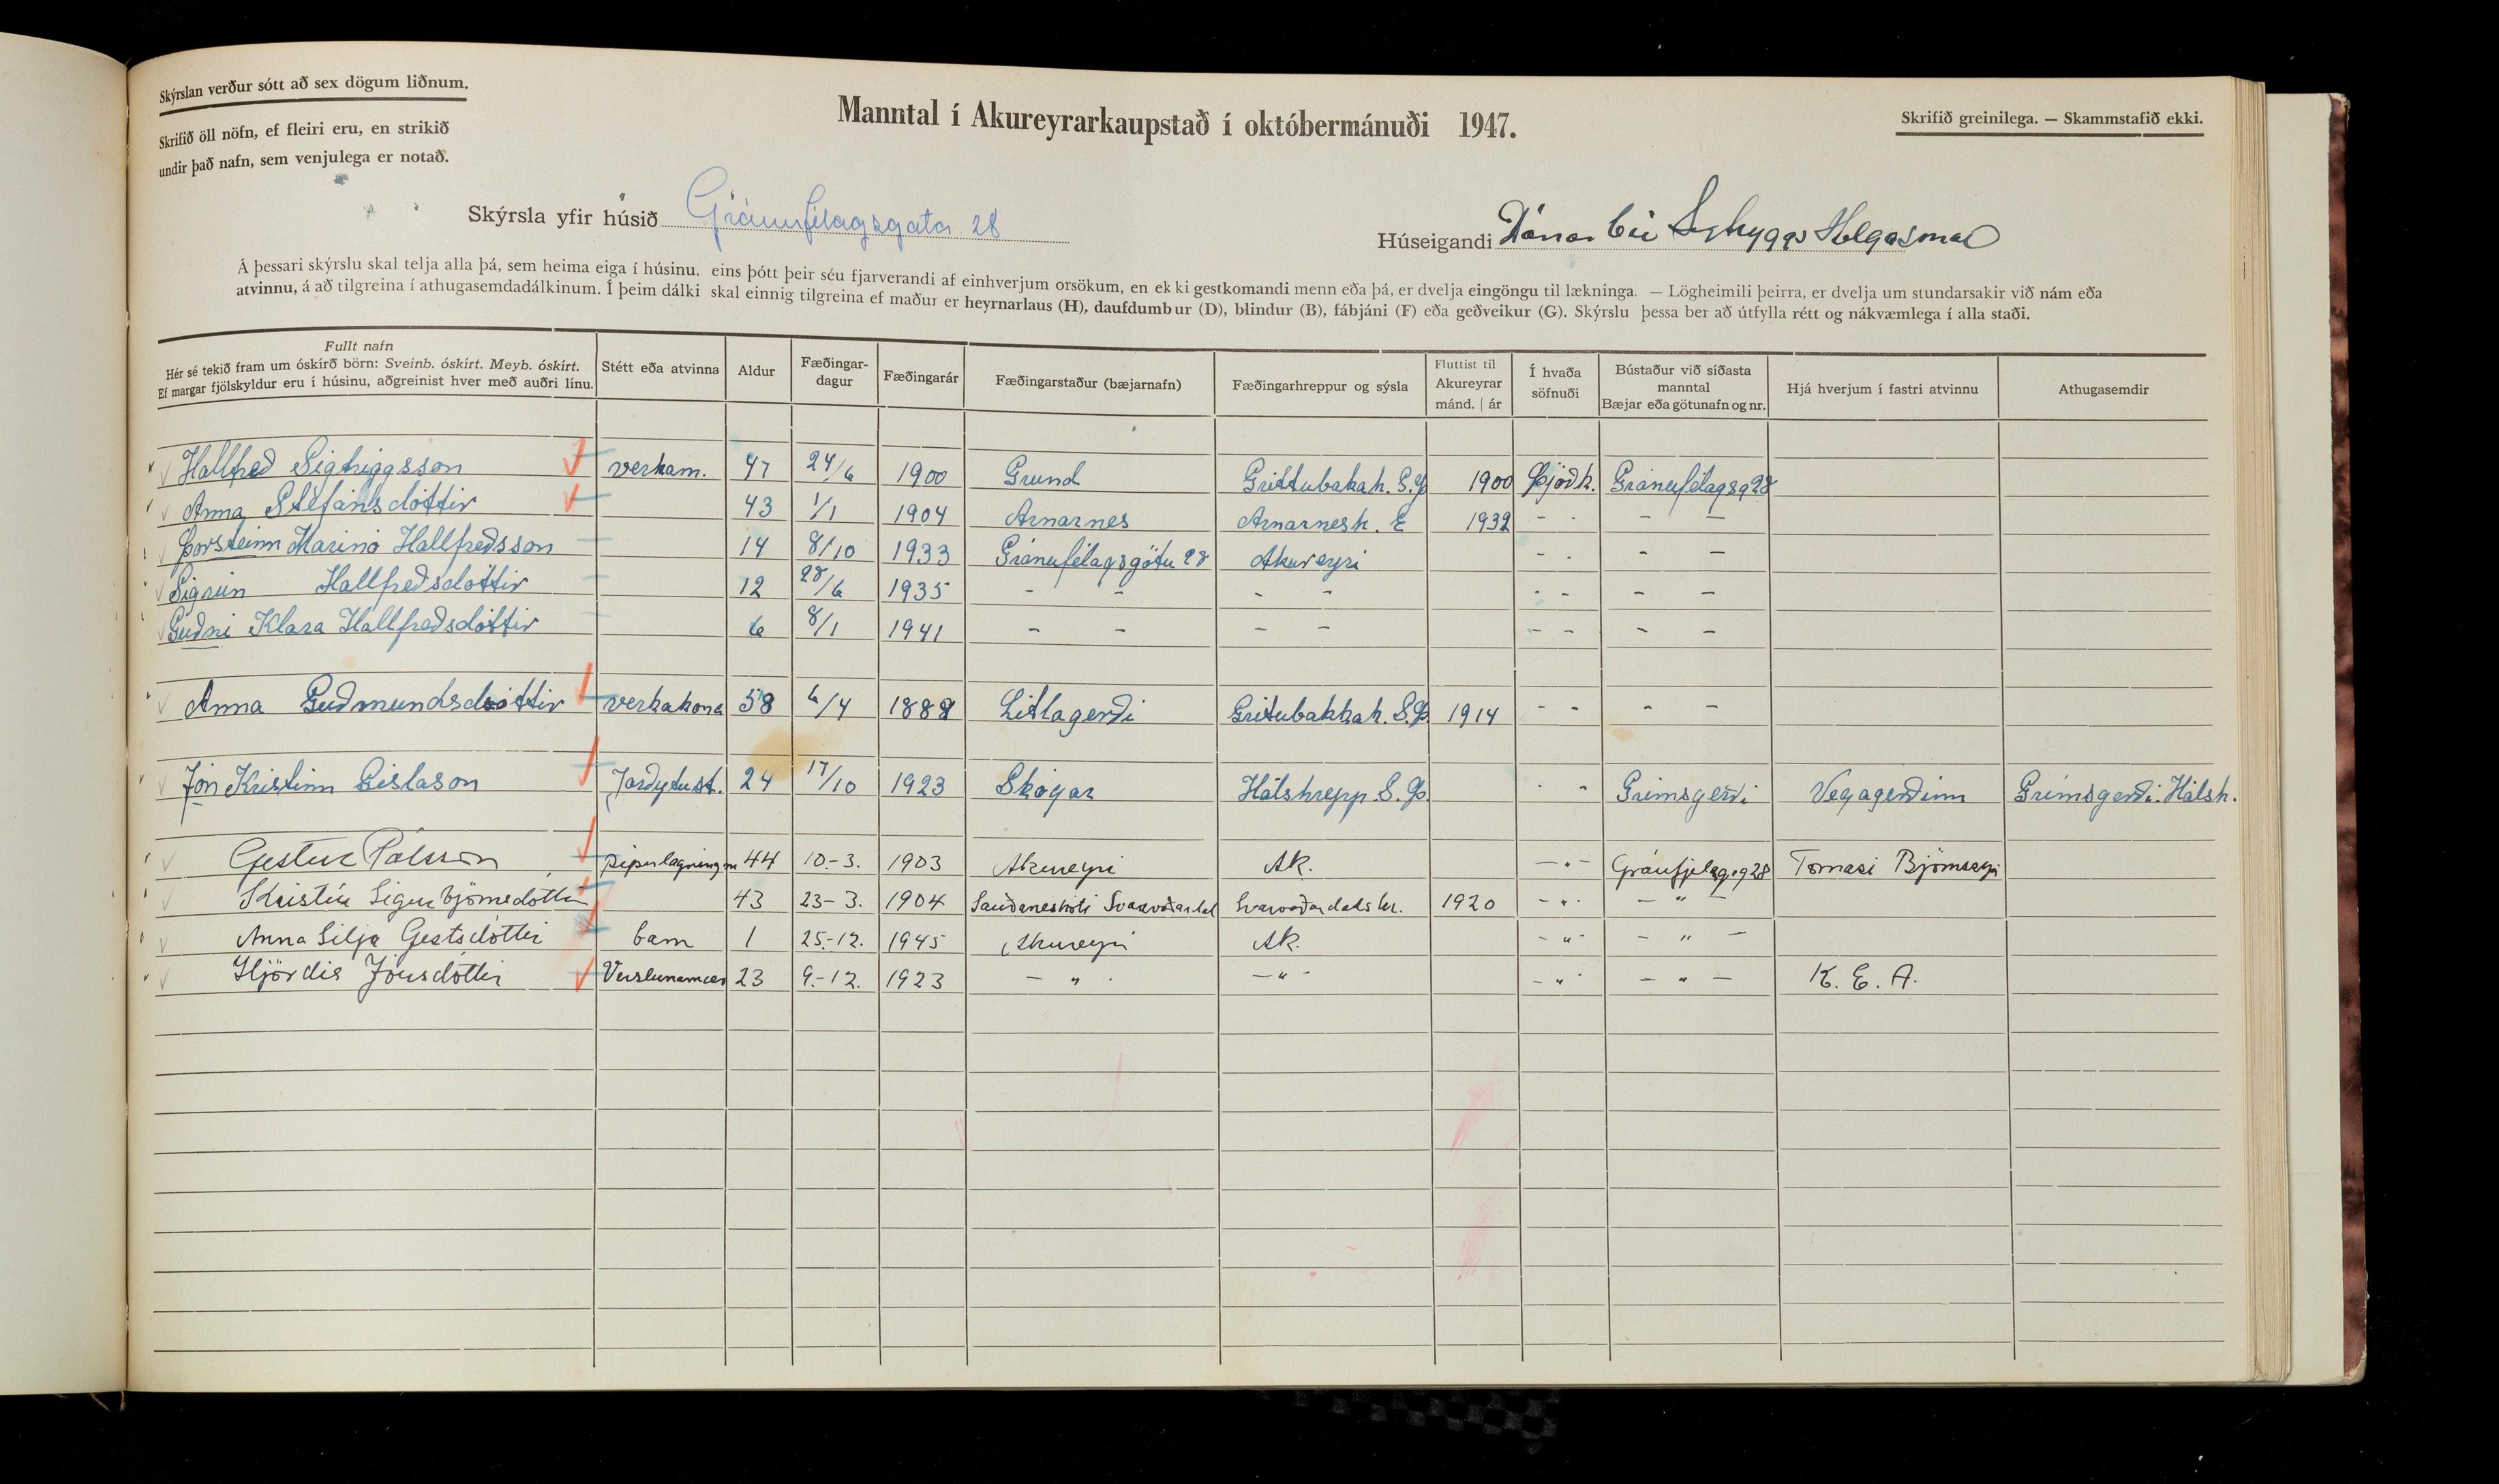 Skýrslan verður sótt að sex dögum liðnum.
Skrifið öll nöfn, ef fleiri eru, en strikið
undir það nafn, sem venjulega er notað.
Manntal í Akureyrarkaupstað í októbermánuði 1947.
Skrifið greinilega. — Skammstafið ekki.
Skýrsla yfir húsið Gránufélagsgata 28
Húseigandi Dánarbú Sigtryggs Helgasonar
Á þessari skýrslu skal telja alla þá, sem heima eiga í húsinu, eins þótt þeir séu fjarverandi af einhverjum orsökum, en ekki gestkomandi menn eða þá, er dvelja eingöngu til lækninga. — Lögheimili þeirra, er dvelja um stundarsakir við nám eða
atvinnu, á að tilgreina í athugasemdadálkinum. Í þeim dálki skal einnig tilgreina ef maður er heyrnarlaus (H), daufdumbur (D), blindur (B), fábjáni (F) eða geðveikur (G). Skýrslu þessa ber að útfylla rétt og nákvæmlega í alla staði.
Fullt nafn
Hér sé tekið fram um óskírð börn: Sveinb. óskírt. Meyb. óskírt.
Ef margar fjölskyldur eru í húsinu, aðgreinist hver með auðri línu.
Stétt eða atvinna
Aldur
Fæðingar-
dagur
Fæðingarár
Fæðingarstaður (bæjarnafn)
Fæðingarhreppur og sýsla
Fluttist til
Akureyrar
mánd. | ár
Í hvaða
söfnuði
Bústaður við síðasta
manntal
Bæjar eða götunafn og nr.
Hjá hverjum í fastri atvinnu
Athugasemdir
Hallfreð Sigtriggsson verkam. 47 24/6 1900 Grund Grittubakah. S.Þ 1900 Þjóðk. Gránufélagsg 28
Anna Stefánsdóttir 43 1/1 1904 Arnarnes Arnarnesh. E 1932 - - - -
Þorsteinn Marinó Hallfreðsson 14 8/10 1933 Gránufélagsgötu 28 Akureyri - - - -
Sigrún Hallfreðsdóttir 12 28/6 1935 - - - - - - - -
Guðní Klara Hallfreðsdóttir 6 8/1 1941 - - - - - - - -
Anna Guðmundsdóttir verkakona 58 6/4 1888 Litlagerði Gritubakkah. S.Þ. 1914 - - - -
Jón Kristinn Gíslason Jarðýtust. 24 17/10 1923 Skógar Hálshrepp S.Þ. - - Grímsgerði Vegagerðinn Grímsgerði. Hálsh.
Gestur Pálsson pípulagningm 44 10-3. 1903 Akureyri Ak. - " - Gránufjelag.g 28 Tómasi Björnssyni
Kristín Sigurbjörnsdóttir 43 23-3. 1904 Sauðaneskoti Svarvaðardal Svarvaðardalshr. 1920 - " - - " -
Anna Lilja Gestsdóttir barn 1 25.-12. 1945 Akureyri Ak. - " - - " -
Hjördís Jónsdóttir Verslunarmær 23 9.-12. 1923 - " - - " - - " - - " - K. E. A.